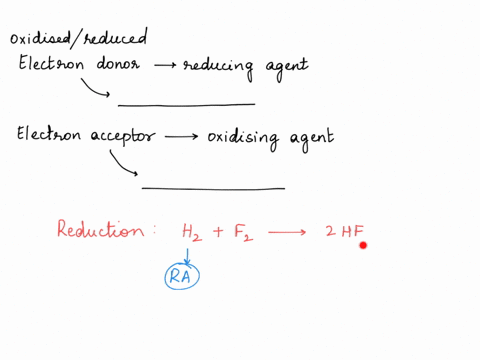 oxidised/reduced
Electron donor → reducing agent
Electron acceptor → oxidising agent
Reduction: H₂ + F₂ → 2HF
RA